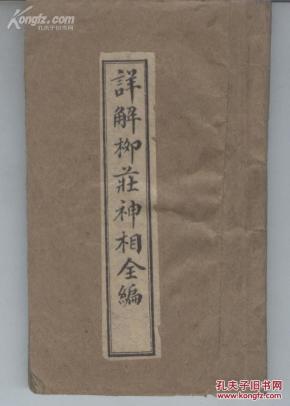 孔夫子旧书网
詳解柳莊神相全編
孔夫子旧书网